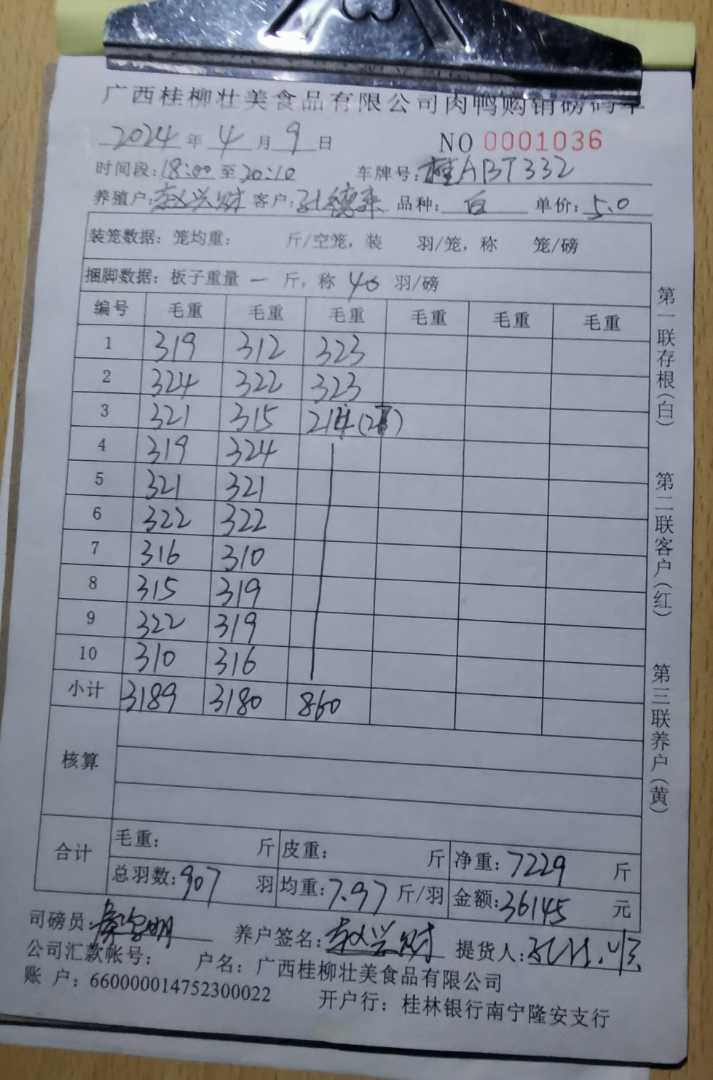 广西桂柳壮美食品有限公司肉鸭购销磅码单
2024 年 4 月 9 日 NO 0001036
时间段: 18:00 至 20:10 车牌号: 桂ABT332
养殖户: 赵兴财 客户: 品种: 白 单价: 5.0
装笼数据: 笼均重: 斤/空笼, 装 羽/笼, 称 笼/磅
捆脚数据: 板子重量 一 斤, 称 40 羽/磅
编号 毛重 毛重 毛重 毛重 毛重 毛重
1 319 312 323
2 324 322 323
3 321 315 214
4 319 324
5 321 321
6 322 322
7 316 310
8 315 319
9 322 319
10 310 316
小计 3189 3180 860
核算
合计 毛重: 斤 皮重: 斤 净重: 7229 斤
总羽数: 907 羽 均重: 7.97 斤/羽 金额: 36145 元
司磅员: 养户签名: 赵兴财 提货人:
公司汇款帐号: 户名: 广西桂柳壮美食品有限公司
账 户: 660000014752300022 开户行: 桂林银行南宁隆安支行
第一联存根(白) 第二联客户(红) 第三联养户(黄)